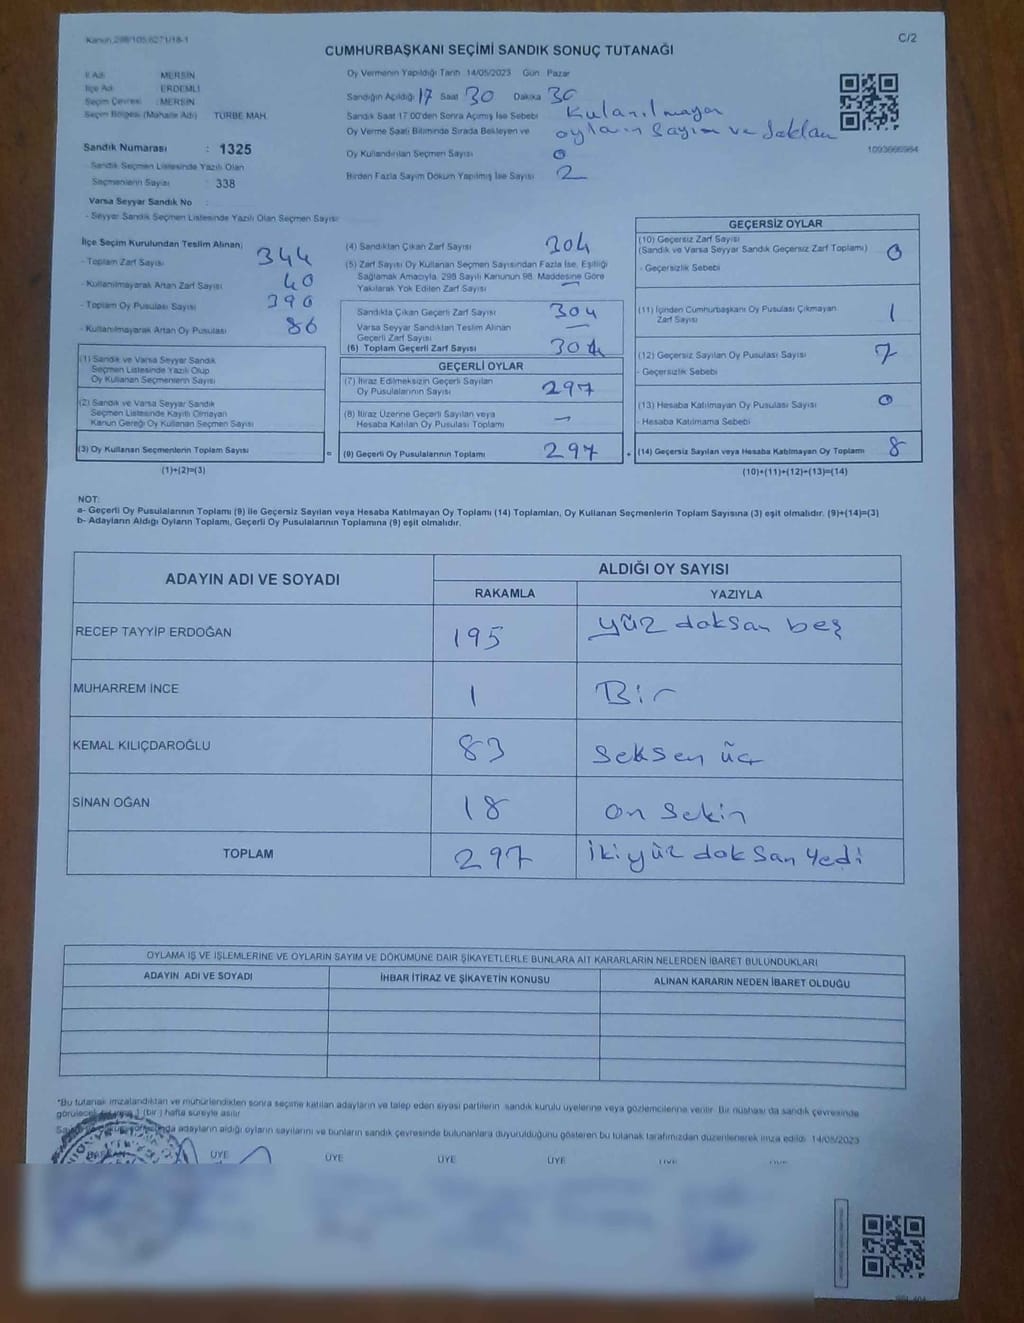 Kanun:298/105;6271/18-1
C/2
CUMHURBAŞKANI SEÇİMİ SANDIK SONUÇ TUTANAĞI
İl Adı : MERSİN
İlçe Adı : ERDEMLİ
Seçim Çevresi : MERSİN
Seçim Bölgesi (Mahalle Adı) TÜRBE MAH.
Sandık Numarası : 1325
Sandık Seçmen Listesinde Yazılı Olan
Seçmenlerin Sayısı : 338
Varsa Seyyar Sandık No
- Seyyar Sandık Seçmen Listesinde Yazılı Olan Seçmen Sayısı
Oy Vermenin Yapıldığı Tarih 14/05/2023 Gün Pazar
Sandığın Açıldığı 17 Saat 30 Dakika 30
Sandık Saat 17.00'den Sonra Açılmış İse Sebebi Kulanılmayan
Oy Verme Saati Bitiminde Sırada Bekleyen ve oyların Sayım ve
Oy Kullandırılan Seçmen Sayısı 0
Birden Fazla Sayım Döküm Yapılmış İse Sayısı 2
1093666984
İlçe Seçim Kurulundan Teslim Alınan;
- Toplam Zarf Sayısı 344
- Kullanılmayarak Artan Zarf Sayısı 40
- Toplam Oy Pusulası Sayısı 390
- Kullanılmayarak Artan Oy Pusulası 86
(1) Sandık ve Varsa Seyyar Sandık
Seçmen Listesinde Yazılı Olup
Oy Kullanan Seçmenlerin Sayısı
(2) Sandık ve Varsa Seyyar Sandık
Seçmen Listesinde Kayıtlı Olmayan
Kanun Gereği Oy Kullanan Seçmen Sayısı
(3) Oy Kullanan Seçmenlerin Toplam Sayısı =
(1)+(2)=(3)
(4) Sandıktan Çıkan Zarf Sayısı 304
(5) Zarf Sayısı Oy Kullanan Seçmen Sayısından Fazla İse, Eşitliği
Sağlamak Amacıyla, 298 Sayılı Kanunun 98. Maddesine Göre
Yakılarak Yok Edilen Zarf Sayısı —
Sandıkta Çıkan Geçerli Zarf Sayısı 304
Varsa Seyyar Sandıktan Teslim Alınan
Geçerli Zarf Sayısı —
(6) Toplam Geçerli Zarf Sayısı 304
GEÇERLİ OYLAR
(7) İtiraz Edilmeksizin Geçerli Sayılan
Oy Pusulalarının Sayısı 297
(8) İtiraz Üzerine Geçerli Sayılan veya
Hesaba Katılan Oy Pusulası Toplamı —
(9) Geçerli Oy Pusulalarının Toplamı 297 +
GEÇERSİZ OYLAR
(10) Geçersiz Zarf Sayısı
(Sandık ve Varsa Seyyar Sandık Geçersiz Zarf Toplamı) 0
- Geçersizlik Sebebi
(11) İçinden Cumhurbaşkanı Oy Pusulası Çıkmayan
Zarf Sayısı 1
(12) Geçersiz Sayılan Oy Pusulası Sayısı 7
- Geçersizlik Sebebi
(13) Hesaba Katılmayan Oy Pusulası Sayısı 0
- Hesaba Katılmama Sebebi
(14) Geçersiz Sayılan veya Hesaba Katılmayan Oy Toplamı 8
(10)+(11)+(12)+(13)=(14)
NOT:
a- Geçerli Oy Pusulalarının Toplamı (9) ile Geçersiz Sayılan veya Hesaba Katılmayan Oy Toplamı (14) Toplamları, Oy Kullanan Seçmenlerin Toplam Sayısına (3) eşit olmalıdır. (9)+(14)=(3)
b- Adayların Aldığı Oyların Toplamı, Geçerli Oy Pusulalarının Toplamına (9) eşit olmalıdır.
ADAYIN ADI VE SOYADI
ALDIĞI OY SAYISI
RAKAMLA YAZIYLA
RECEP TAYYİP ERDOĞAN 195 yüz doksan beş
MUHARREM İNCE 1 Bir
KEMAL KILIÇDAROĞLU 83 seksen üç
SİNAN OĞAN 18 on sekin
TOPLAM 297 ikiyüz doksan yedi
OYLAMA İŞ VE İŞLEMLERİNE VE OYLARIN SAYIM VE DÖKÜMÜNE DAİR ŞİKAYETLERLE BUNLARA AİT KARARLARIN NELERDEN İBARET BULUNDUKLARI
ADAYIN ADI VE SOYADI İHBAR İTİRAZ VE ŞİKAYETİN KONUSU ALINAN KARARIN NEDEN İBARET OLDUĞU
*Bu tutanak imzalandıktan ve mühürlendikten sonra seçime katılan adayların ve talep eden siyasi partilerin sandık kurulu üyelerine veya gözlemcilerine verilir. Bir nüshası da sandık çevresinde
görülecek 1 (bir) hafta süreyle asılır.
adayların aldığı oyların sayılarını ve bunların sandık çevresinde bulunanlara duyurulduğunu gösteren bu tutanak tarafımızdan düzenlenerek imza edildi. 14/05/2023
BAŞKAN ÜYE ÜYE ÜYE ÜYE ÜYE ÜYE